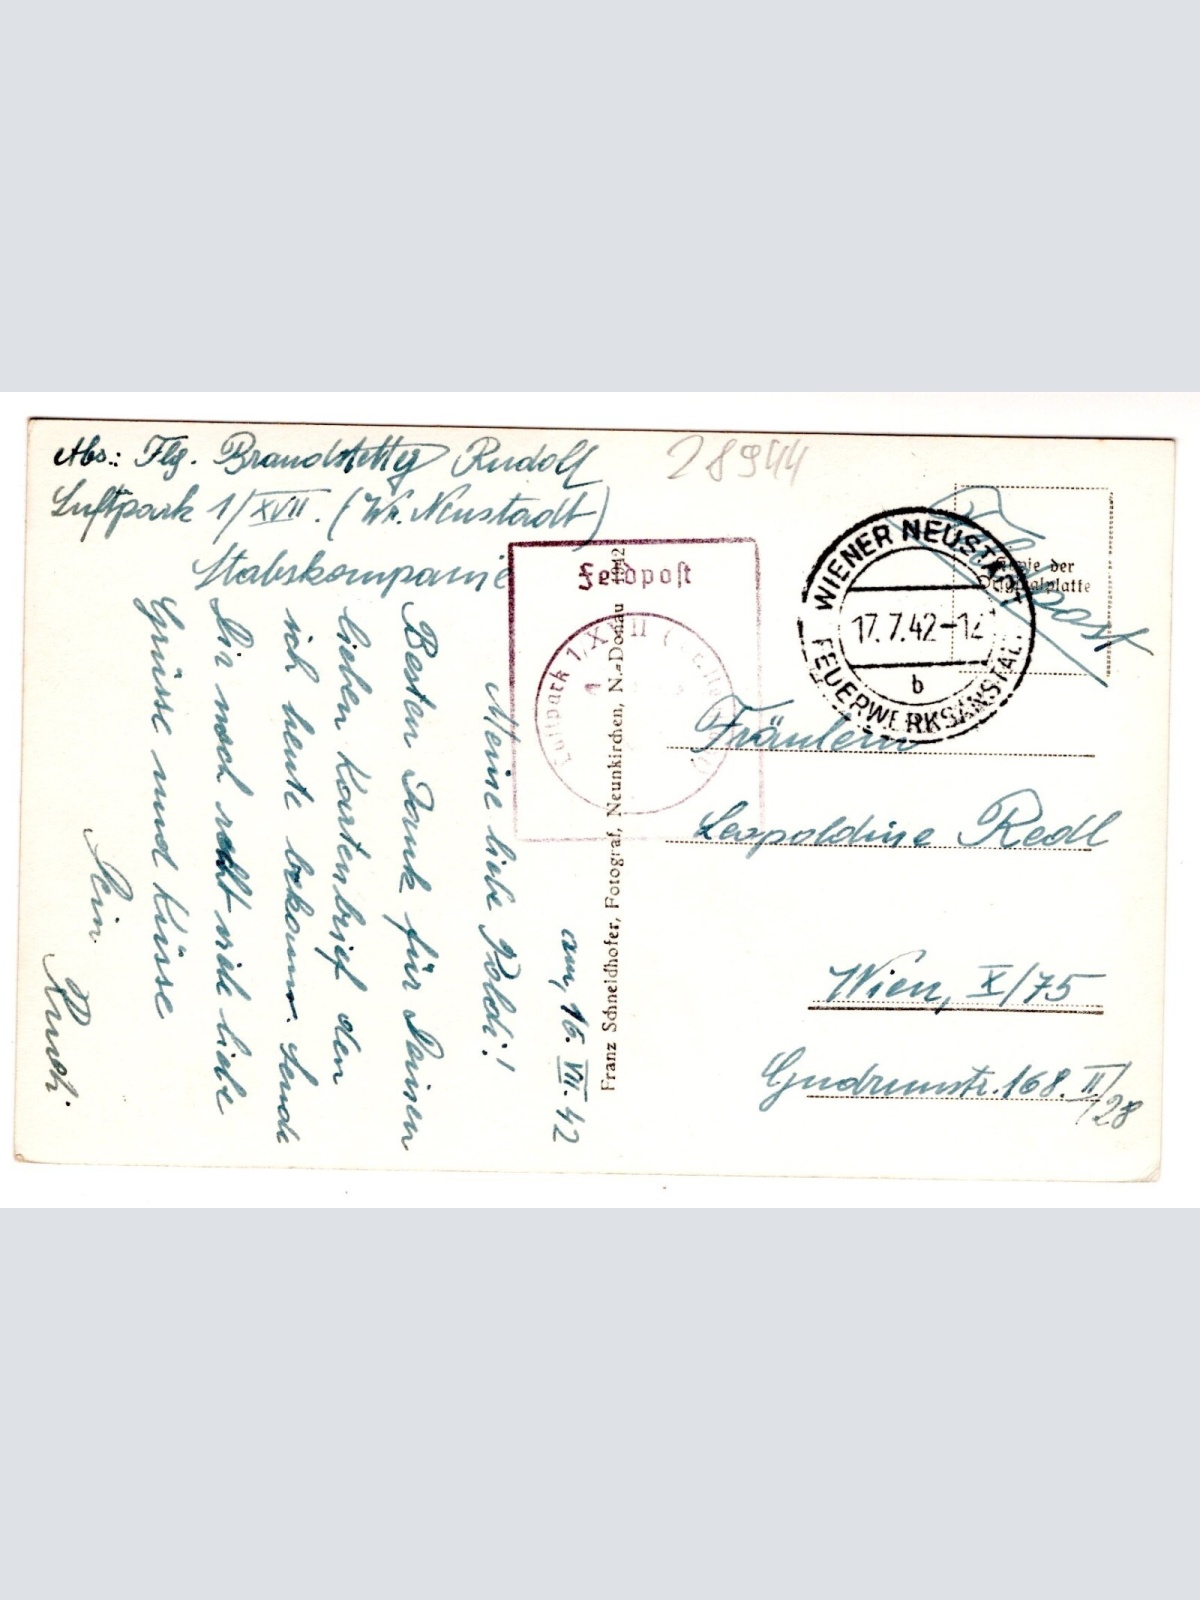 Abs.: Flg. Brandstetter Rudolf
Luftpark 1/XVII. (Wr. Neustadt)
Stabskompanie
28944
Feldpost
Luftpark 1/XVII (
Kopie der
Originalplatte
Feldpost
WIENER NEUSTADT
17.7.42-12
b
FEUERWERKSANSTALT
am, 16. VII. 42
Meine liebe Poldi!
Besten Dank für Deinen
lieben Kartenbrief den
ich heute bekomm. Sende
Dir noch recht viele liebe
Grüsse und Küsse
Dein
Rudi.
Franz Schneidhofer, Fotograf, Neunkirchen, N.-Donau 1942
Fräulein
Leopoldine Redl
Wien, X/75
Gudrunstr. 168. II/28